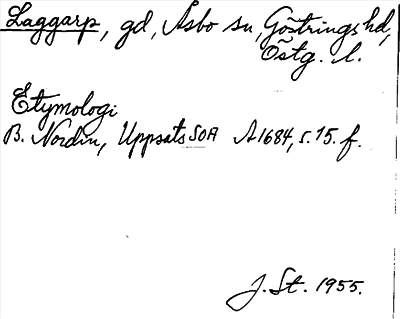 Laggarp, gd, Åsbo sn, Göstrings hd,
Östg. l.
Etymologi
B. Nordin, Uppsats SOA A1684, s. 15. f.
J. St. 1955.